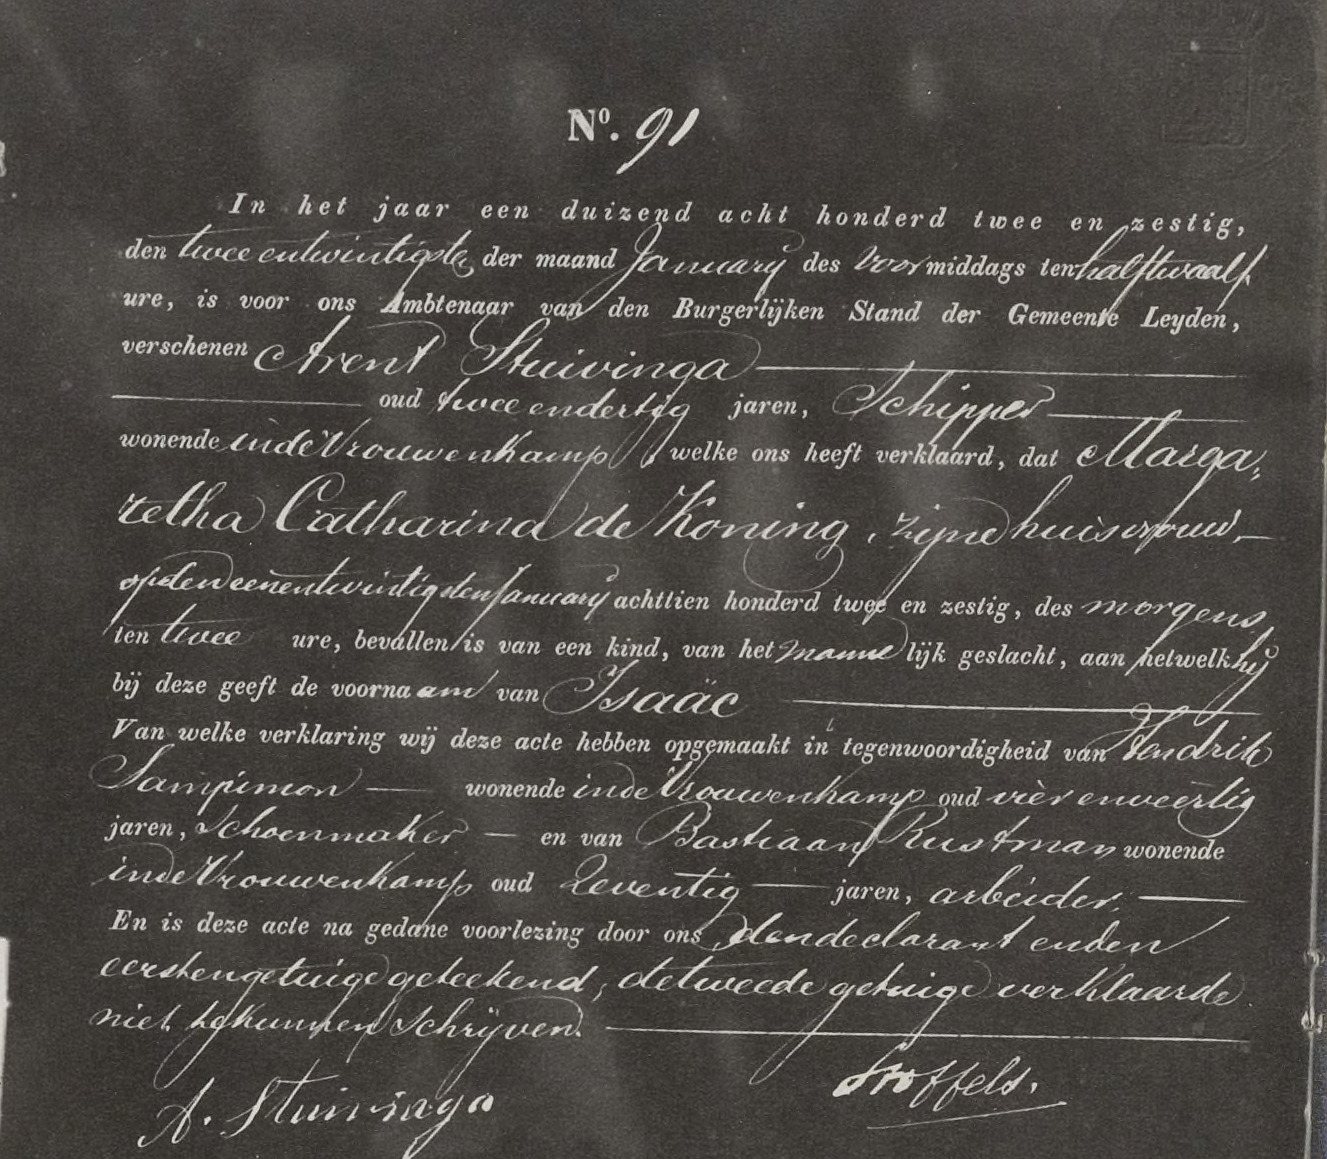 Nº. 91
In het jaar een duizend acht honderd twee en zestig,
den twee entwintigste der maand January des Voormiddags ten halftwaalf
ure, is voor ons Ambtenaar van den Burgerlijken Stand der Gemeente Leyden,
verschenen Arent Stuivinga
oud twee endertig jaren, Schipper
wonende inde Vrouwenkamp, welke ons heeft verklaard, dat Marga,
retha Catharina de Koning, zijne huisvrouw,
opden eenentwintigsten January achttien honderd twee en zestig, des morgens
ten twee ure, bevallen is van een kind, van het mannelijk geslacht, aan hetwelk hij
bij deze geeft de voornaam van Isaäc
Van welke verklaring wij deze acte hebben opgemaakt in tegenwoordigheid van Hendrik
Sampimon wonende inde Vrouwenkamp oud vier enveertig
jaren, Schoenmaker en van Bastiaan Rustman wonende
inde Vrouwenkamp oud Zeventig jaren, arbeider.
En is deze acte na gedane voorlezing door ons, den declarant enden
eersten getuige geteekend, de tweede getuige verklaarde
niet te kunnen Schrijven.
Stoffels.
A. Stuivinga